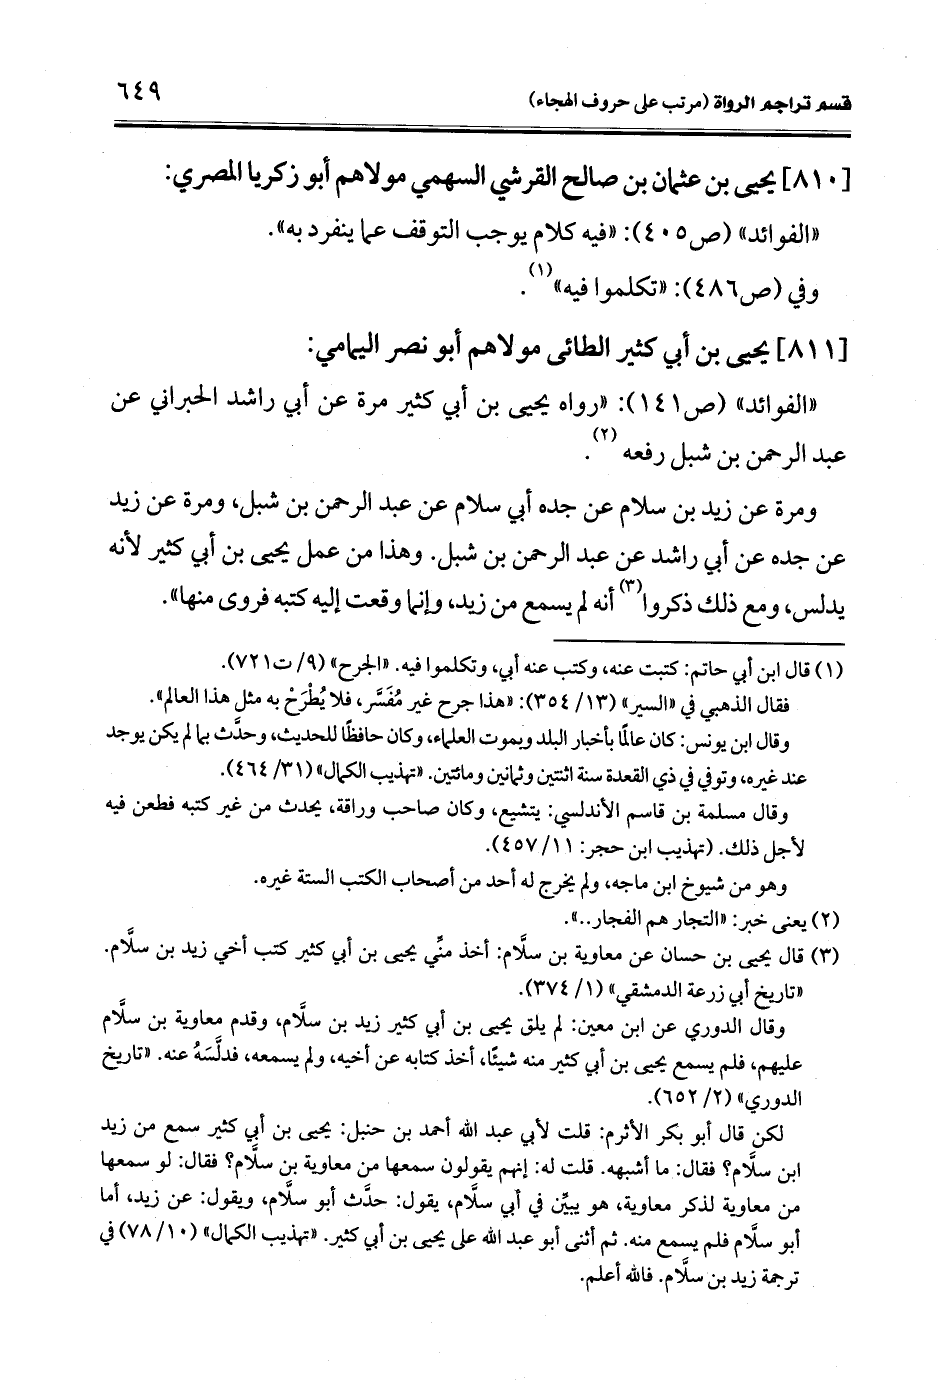 قسم تراجم الرواة (مرتب على حروف الهجاء)
٦٤٩
[٨١٠] يحيى بن عثمان بن صالح القرشي السهمي مولاهم أبو زكريا المصري:
«الفوائد» (ص٤٠٥): «فيه كلام يوجب التوقف عما ينفرد به».
وفي (ص٤٨٦): «تكلموا فيه»(١).
[٨١١] يحيى بن أبي كثير الطائى مولاهم أبو نصر اليمامي:
«الفوائد» (ص١٤١): «رواه يحيى بن أبي كثير مرة عن أبي راشد الحبراني عن
عبد الرحمن بن شبل رفعه(٢).
ومرة عن زيد بن سلام عن جده أبي سلام عن عبد الرحمن بن شبل، ومرة عن زيد
عن جده عن أبي راشد عن عبد الرحمن بن شبل. وهذا من عمل يحيى بن أبي كثير لأنه
يدلس، ومع ذلك ذكروا(٣) أنه لم يسمع من زيد، وإنما وقعت إليه كتبه فروى منها».
(١) قال ابن أبي حاتم: كتبت عنه، وكتب عنه أبي، وتكلموا فيه. «الجرح» (٩/ ت٧٢١).
فقال الذهبي في «السير» (١٣/ ٣٥٤): «هذا جرح غير مُفَسَّر، فلا يُطْرَحْ به مثل هذا العالم».
وقال ابن يونس: كان عالمًا بأخبار البلد وبموت العلماء، وكان حافظًا للحديث، وحدَّث بما لم يكن يوجد
عند غيره، وتوفي في ذي القعدة سنة اثنتين وثمانين ومائتين. «تهذيب الكمال» (٣١/ ٤٦٤).
وقال مسلمة بن قاسم الأندلسي: يتشيع، وكان صاحب وراقة، يحدث من غير كتبه فطعن فيه
لأجل ذلك. (تهذيب ابن حجر: ١١/ ٤٥٧).
وهو من شيوخ ابن ماجه، ولم يخرج له أحد من أصحاب الكتب الستة غيره.
(٢) يعنى خبر: «التجار هم الفجار..».
(٣) قال يحيى بن حسان عن معاوية بن سلَّام: أخذ منِّي يحيى بن أبي كثير كتب أخي زيد بن سلَّام.
«تاريخ أبي زرعة الدمشقي» (١/ ٣٧٤).
وقال الدوري عن ابن معين: لم يلق يحيى بن أبي كثير زيد بن سلَّام، وقدم معاوية بن سلَّام
عليهم، فلم يسمع يحيى بن أبي كثير منه شيئًا، أخذ كتابه عن أخيه، ولم يسمعه، فدلَّسَهُ عنه. «تاريخ
الدوري» (٢/ ٦٥٢).
لكن قال أبو بكر الأثرم: قلت لأبي عبد الله أحمد بن حنبل: يحيى بن أبي كثير سمع من زيد
ابن سلَّام؟ فقال: ما أشبهه. قلت له: إنهم يقولون سمعها من معاوية بن سلَّام؟ فقال: لو سمعها
من معاوية لذكر معاوية، هو يبيِّن في أبي سلَّام، يقول: حدَّث أبو سلَّام، ويقول: عن زيد، أما
أبو سلَّام فلم يسمع منه. ثم أثنى أبو عبد الله على يحيى بن أبي كثير. «تهذيب الكمال» (١٠/ ٧٨) في
ترجمة زيد بن سلَّام. فالله أعلم.